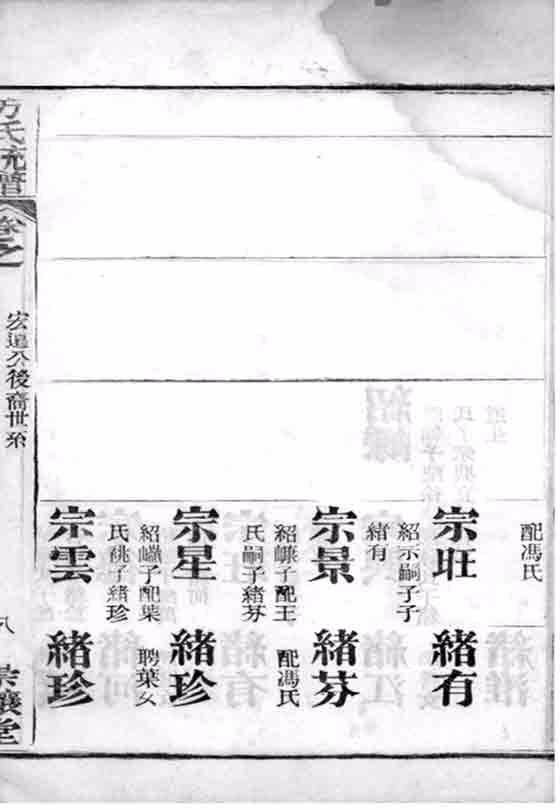 配馮氏
宗旺
紹示嗣子子
緒有
宗景
紹子配王
氏嗣子緒芬
宗星
紹子配葉
氏祧子緒珍
宗雲
緒有
緒芬
配馮氏
緒珍
聘葉女
緒珍
方氏統譜
卷之
宏公後裔世系
八
讓堂